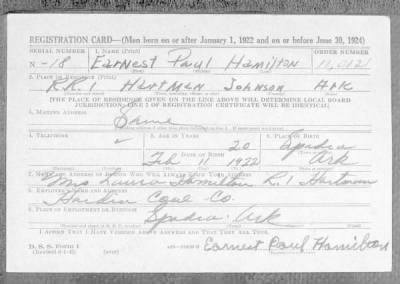 REGISTRATION CARD—(Men born on or after January 1, 1922 and on or before June 30, 1924)
SERIAL NUMBER 1. NAME (Print) ORDER NUMBER
N-18 Earnest Paul Hamilton
(First) (Middle) (Last)
2. PLACE OF RESIDENCE (Print)
R.R. 1 Hartman Johnson Ark
[THE PLACE OF RESIDENCE GIVEN ON THE LINE ABOVE WILL DETERMINE LOCAL BOARD
JURISDICTION; LINE 2 OF REGISTRATION CERTIFICATE WILL BE IDENTICAL]
3. MAILING ADDRESS
Same
4. TELEPHONE 5. AGE IN YEARS 6. PLACE OF BIRTH
20 Spadra
DATE OF BIRTH
Feb 11 1922 Ark
7. NAME AND ADDRESS OF PERSON WHO WILL ALWAYS KNOW YOUR ADDRESS
Mrs Laura Hamilton R.1 Hartman
8. EMPLOYER'S NAME AND ADDRESS
Coal Co.
9. PLACE OF EMPLOYMENT OR BUSINESS
Spadra Ark
I AFFIRM THAT I HAVE VERIFIED ABOVE ANSWERS AND THAT THEY ARE TRUE.
D. S. S. Form 1 Earnest Paul Hamilton